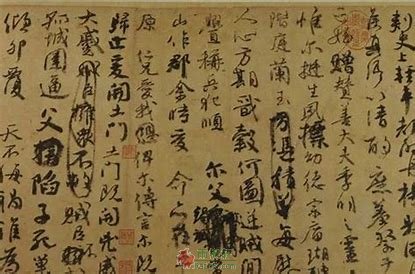 輕車都尉
真卿以清酌庶羞祭于
亡姪贈贊善大夫季明之靈
惟爾挺生夙標幼德宗廟瑚
階庭蘭玉方憑積善每慰
人心方期戩穀何圖逆賊間
釁稱兵犯順爾父
山作郡余時受命亦在
原仁兄愛我俾爾傳言爾既
歸止爰開土門土門既開凶威
大蹙賊臣擁衆不救賊臣不
孤城圍逼父陷子死巢
傾卵覆天不悔禍誰為